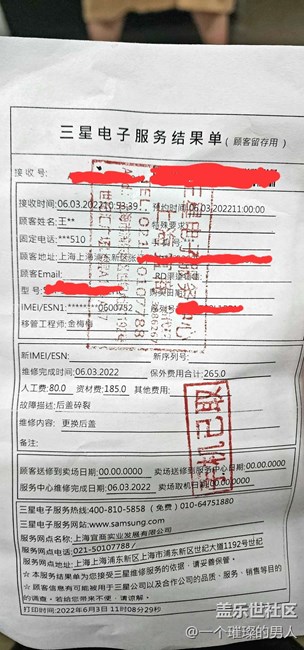 三星电子服务结果单(顾客留存用)
接收号:
接收时间:06.03.2022 10:53:39 预约时间:06.03.2022 11:00:00
顾客姓名:王** 特殊要求:
固定电话:***510
顾客地址:上海上海浦东新区张
顾客Email: RD渠道
型号:
IMEI/ESN1: 0600752 序列号:
移管工程师:金梅梅
新IMEI/ESN: 新序列号:
维修完成时间:06.03.2022 保外费用合计:265.0
人工费:80.0 资材费:185.0 其他费用:
故障描述:后盖碎裂
维修内容: 更换后盖
备注:
顾客送修到卖场日期:00.00.0000 卖场送修到服务中心日期:00.00.0000
服务中心维修完成日期:06.03.2022 卖场取机日期:00.00.0000
三星电子服务热线:400-810-5858 (免费) 010-64751880
三星电子服务网站:www.samsung.com
服务网点名称:上海宜商实业发展有限公司
服务网点电话:021-50107788/
服务网点地址:上海浦东新区上海市浦东新区世纪大道1192号世纪
☆本服务结果单为您接受三星维修服务的依据,请妥善保管。
☆顾客信息有可能被用于三星公司以及合作公司的品质、服务、销售等目的
的调查。若给您带来不便,请谅解。
打印时间:2022年6月3日 11时08分29秒
盖乐世社区
@一个璀璨的男人